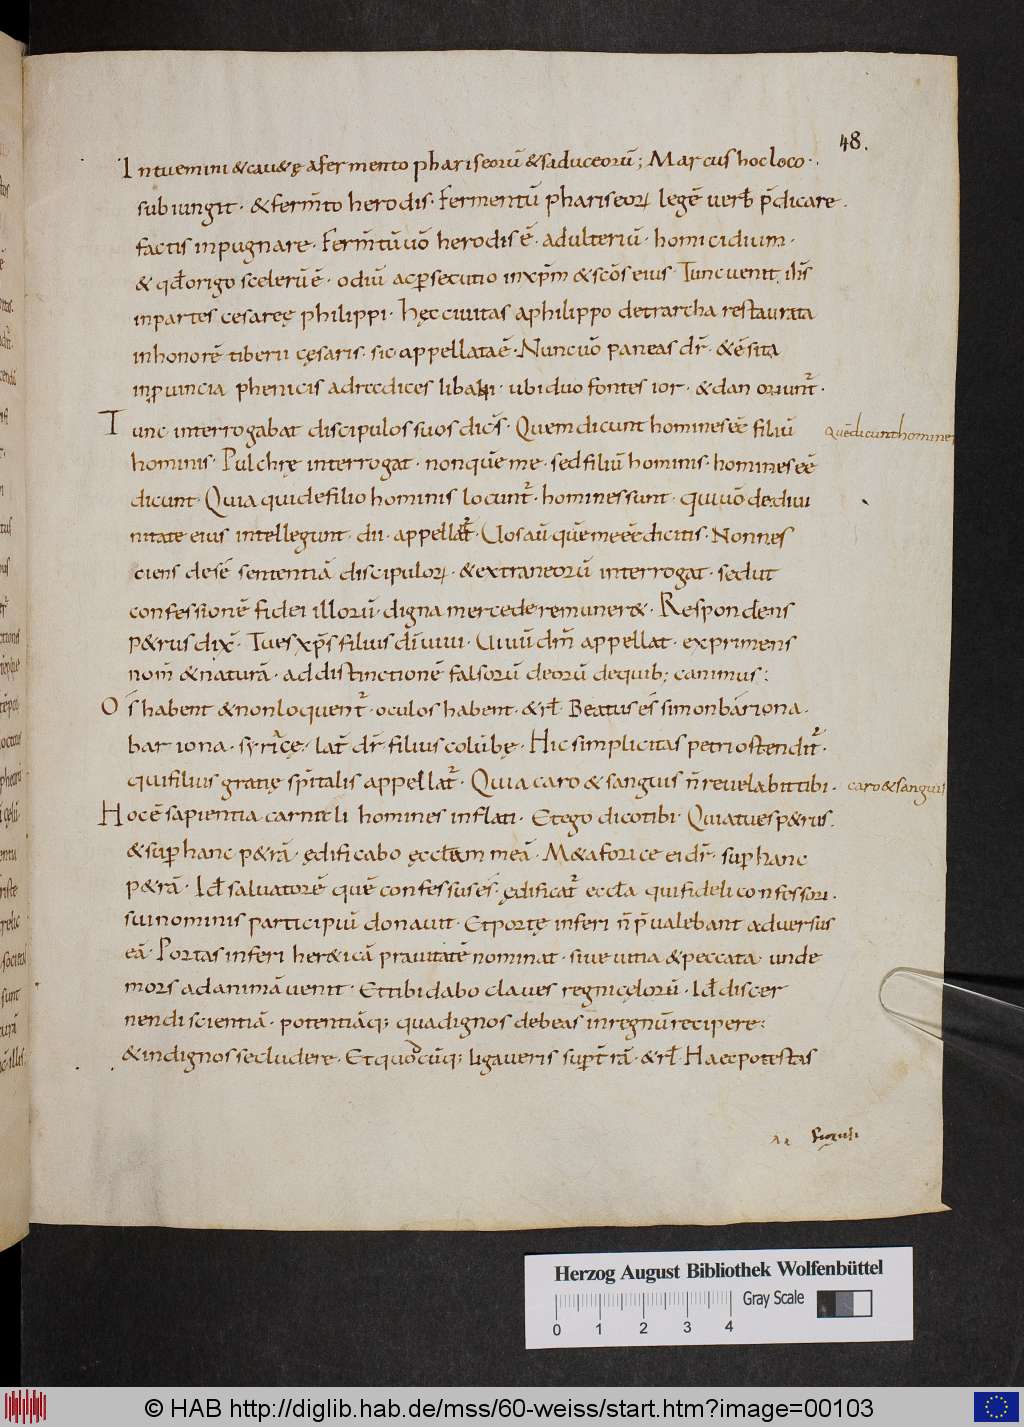 48.
Intuemini & cau&ę a fermento phariseorū & saduceorū; Marcus hoc loco ·
subiungit · & ferm̄to herodis · Fermentū phariseorꝝ legē uerƀ p̄dicare ·
factis inpugnare · Ferm̄tū uō herodis ē · adulteriū · homicidium ·
& qđ origo scelerū ē · odiū ac ꝑsecutio in xp̄m & sc̄os eius · Tunc uenit ih̄s
in partes cesareę philippi · Hęc ciuitas a philippo detrarcha restaurata
in honorē tiberii cęsaris · sic appellata ē · Nunc uō paneas dr̄ · & ē sita
in ꝓuincia phenicis ad redices libani · ubi duo fontes ior · & dan oriunt̄ ·
Tunc interrogabat discipulos suos dics̄ · Quem dicunt homines eē filiū
quē dicunt homines
hominis · Pulchrę interrogat · non quē me · sed filiū hominis · homines eē
dicunt · Quia qui de filio hominis locunt̄ · homines sunt · qui uō de diui
nitate eius intellegunt · dii · appellat̄ · Uos aū quē me eē dicitis · Non nes
ciens de se sententiā discipulorꝝ · & extraneorū interrogat · sed ut
confessionē fidei illorū · digna mercede remuner& · Respondens
p&rus dix̄ · Tu es xp̄s filius dī uiui · Uiuū dm̄ appellat · exprimens
nom̄ & naturā · ad distinctionē falsorū deorū de quib; canimus:
Os̄ habent & non loquent̄ · oculos habent · & rł · Beatus es simon bariona ·
bar iona · syricę · lat̄ dr̄ filius colūbę · Hic simplicitas petri ostendit̄ ·
qui filius gratię sp̄italis appellat̄ · Quia caro & sanguis n̄ reuelabit tibi ·
caro & sanguis
Hoc ē sapientia carniteli homines inflati · Et ego dico tibi · Quia tu es p&rus ·
& suꝑ hanc p&rā · ędificabo ęccłam meā · M&aforice ei dr̄ · suꝑ hanc
p&rā · Iđ saluatorē quē confessus es · ędificat̄ eccła qui fideli confessori ·
sui nominis participiū donauit · Et portę inferi n̄ p̄ualebant aduersus
eā · Portas inferi her&icā prauitatē nominat · siue uitia & peccata · unde
mors ad animā uenit · Et tibi dabo claues regni cęlorū · Iđ discer
nendi scientiā · potentiāq; qua dignos debeas in regnū recipere:
& indignos secludere · Et quodcūq; ligaueris suꝑ t̄rā · & rł · Haec potestas
Herzog August Bibliothek Wolfenbüttel
Gray Scale
0 1 2 3 4
© HAB http://diglib.hab.de/mss/60-weiss/start.htm?image=00103